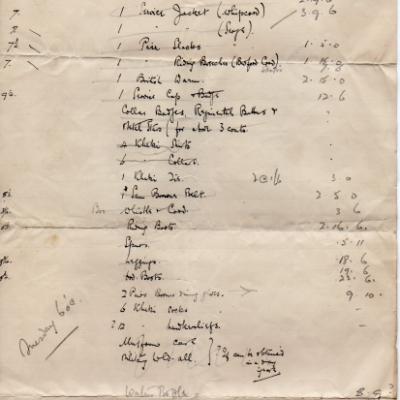 7. 1 Service Jacket (Whipcord) 3. 9. 6
1 " " (Serge).
7½ 1 Pair Slacks 1. 5. 0
7. 1 " Riding Breeches (Bedford Cord)
1 British Warm. 2. 15. 0
1 Service Cap & Badge 12. 6
Collar Badges, Regimental Buttons &
for about 3 coats.
4 Khaki Shirts
6 " Collars.
1 Khaki Tie. 2 @ 1/6 3. 0
1 Sam Browne Belt. 2 5. 0
Whistle & Cord. 3 6
Riding Boots 2. 16. 6.
Spurs. .5. 11
Leggings. .18. 6
Boots. 19. 6
2 Pairs Brown gloves. 9. 10.
6 Khaki socks -
? 12 " handkerchiefs. -
Muffler can be obtained
in a day
Tuesday 600.
Water Bottle